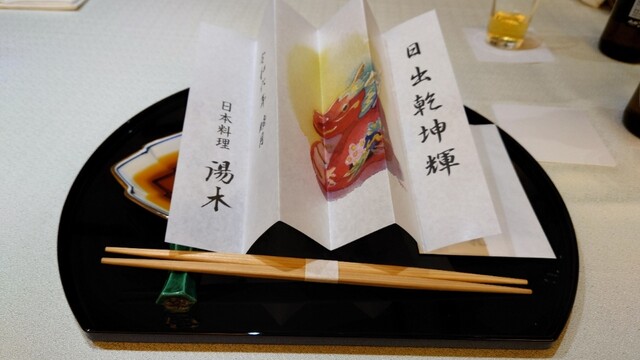 日出乾坤輝
日本料理 湯木